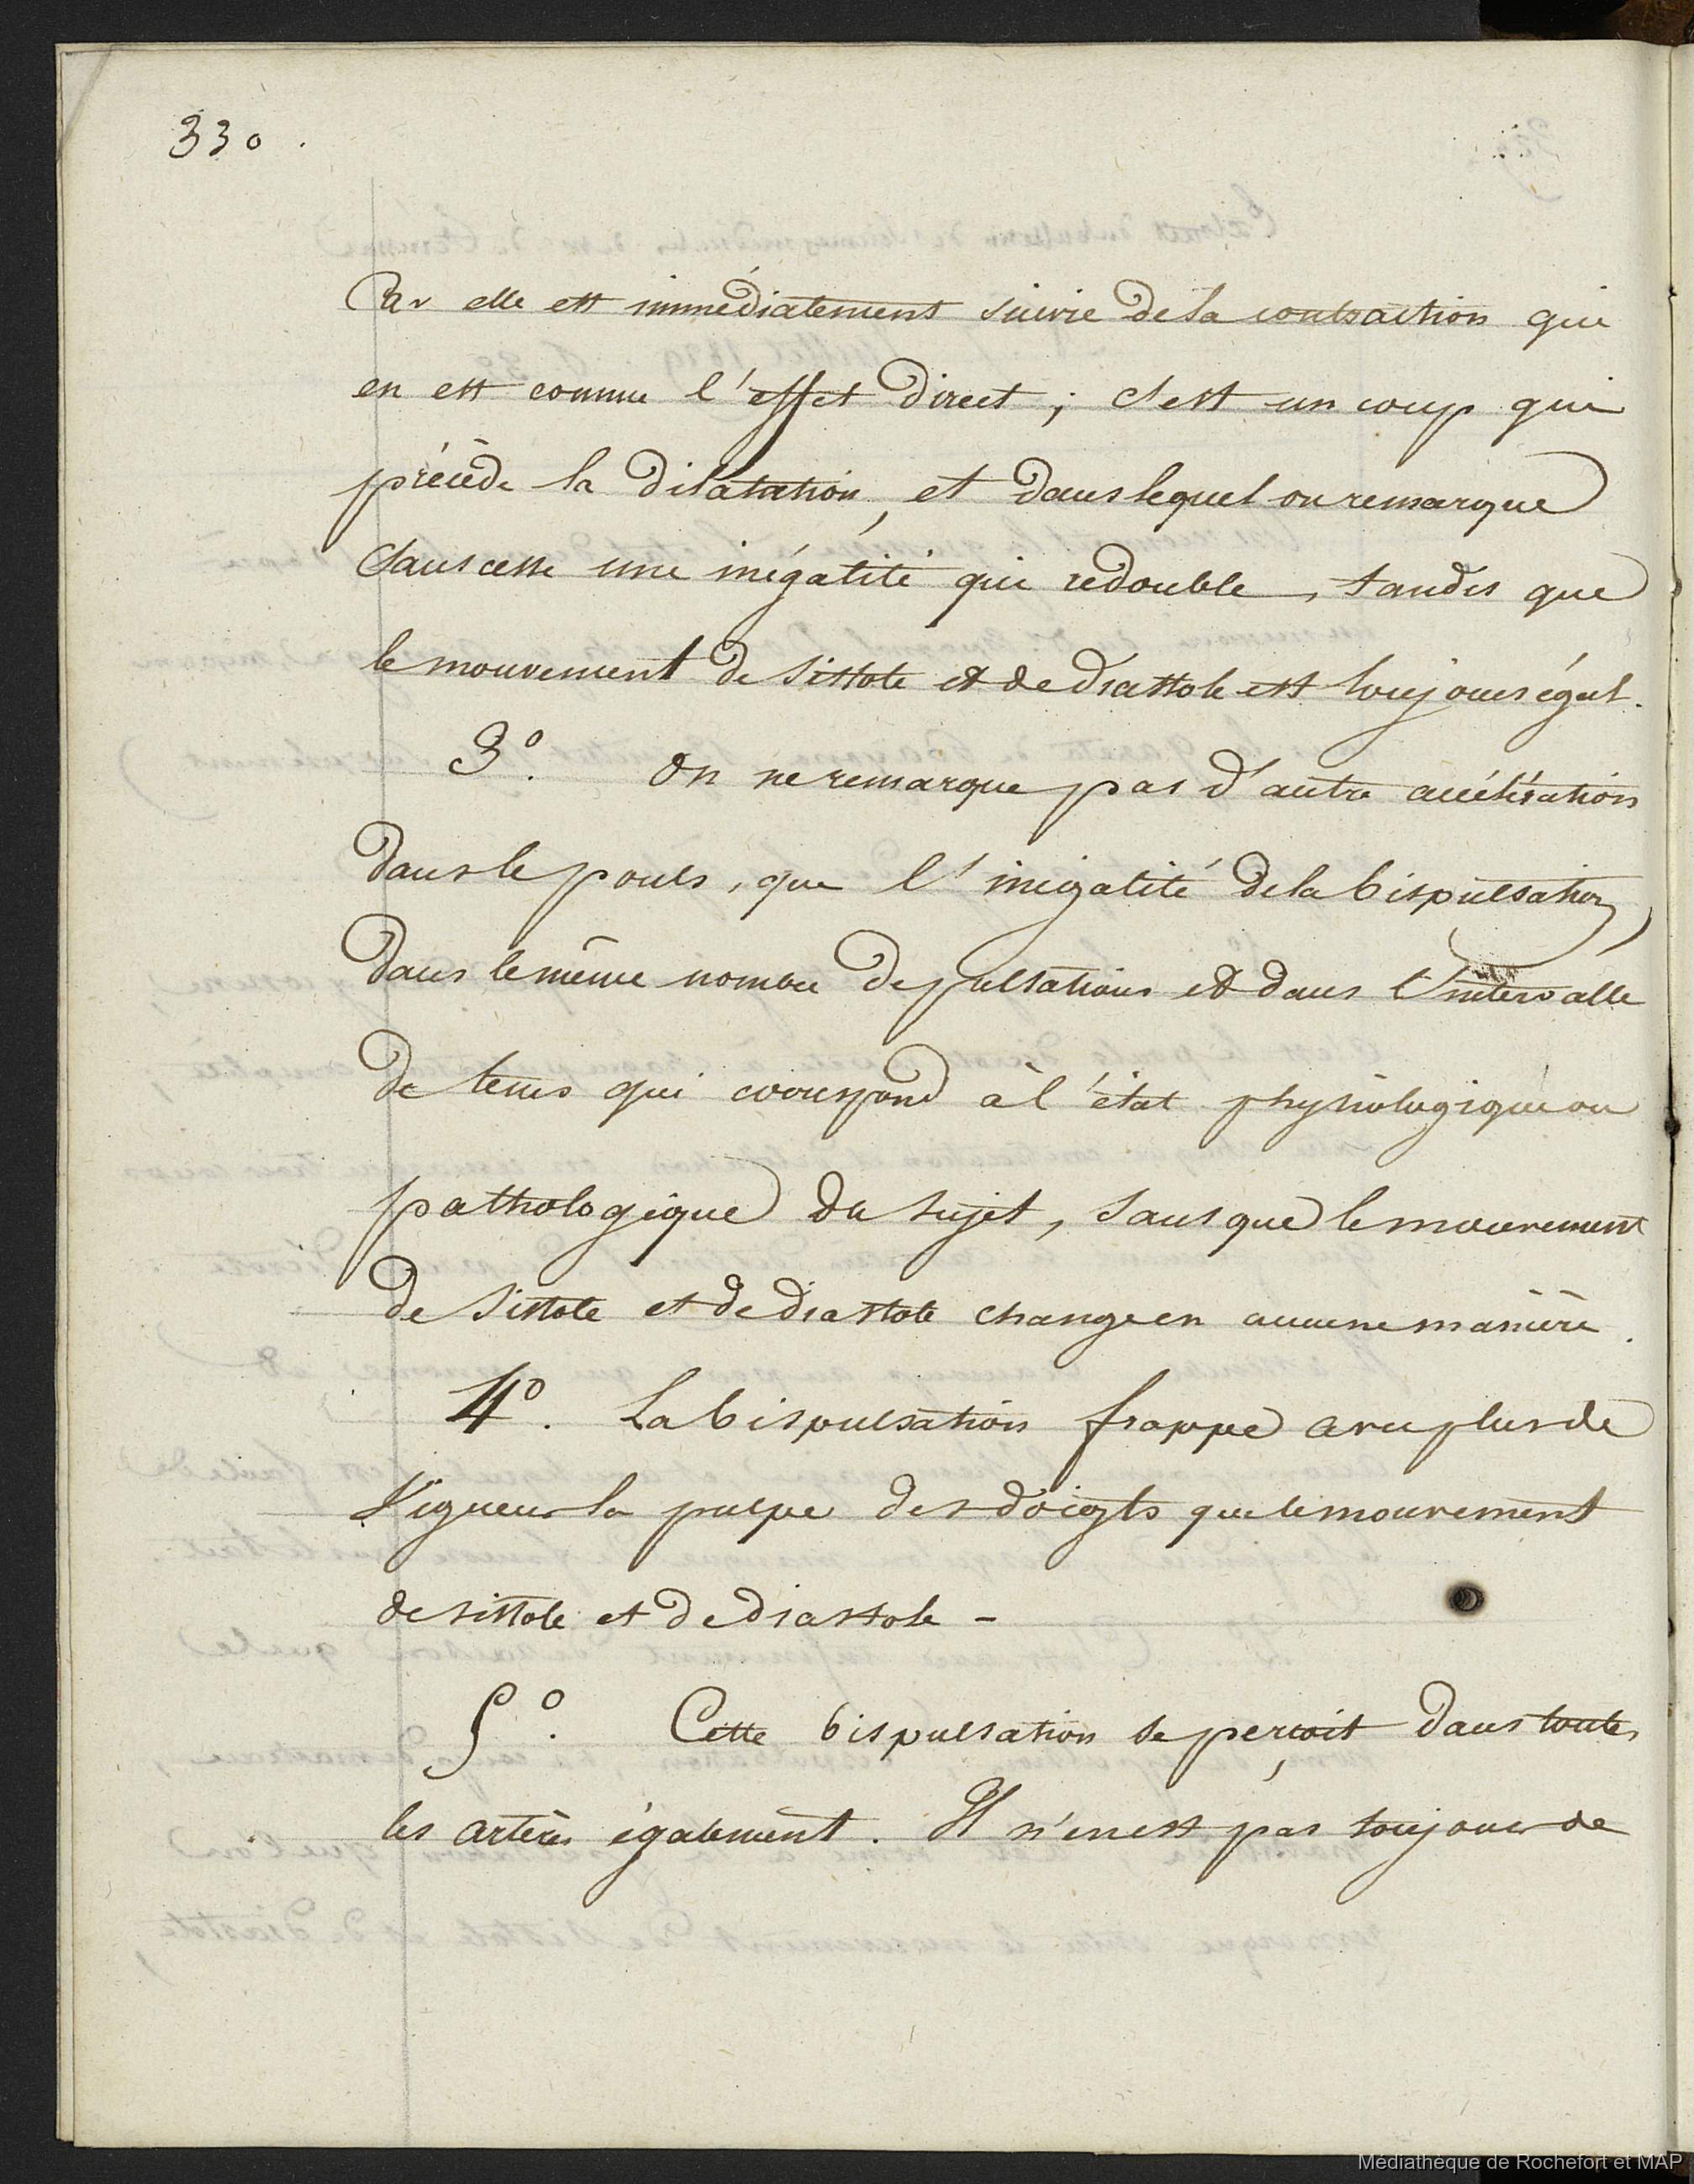 330.
Car elle est immédiatement suivie de la contraction qui
en est comme l'effet direct ; c'est un coup qui
précède la dilatation, et dans lequel on remarque
sans cesse une inégalité qui redouble, tandis que
le mouvement de sistole et de diastole est toujours égal.
3º. On ne remarque pas d'autre accélération
dans le pouls, que l'inégalité de la bispulsation,
dans le même nombre de pulsations et dans l'intervalle
de tems qui correspond à l'état physiologique ou
pathologique du sujet, sans que le mouvement
de sistole et de diastole change en aucune manière.
4º. La bispulsation frappe avec plus de
vigueur la pulpe des doigts que le mouvement
de sistole et de diastole -
5º. Cette bispulsation se perçoit dans toutes
les artères également. Il n'en est pas toujours de
Médiathèque de Rochefort et MAP